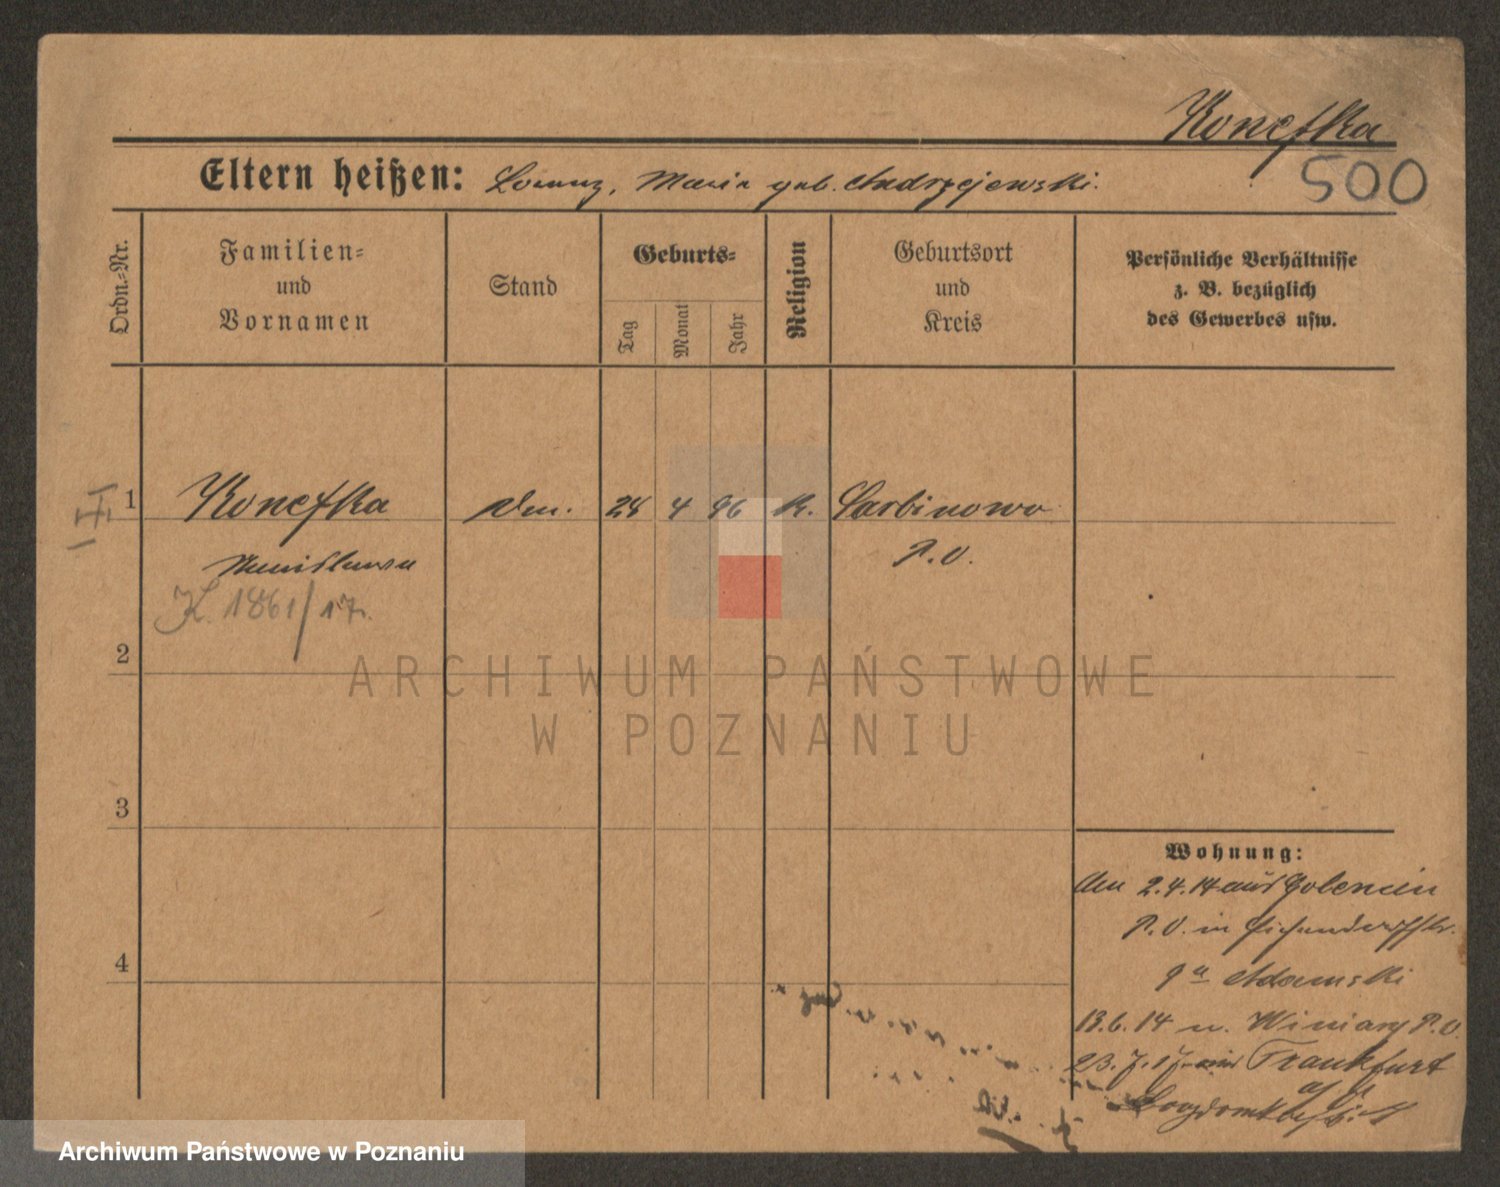 Konefka
500
Eltern heißen: Lorenz, Maria geb. Andrzejewski.
Ordn.-Nr.
Familien-
und
Vornamen
Stand
Geburts-
Tag
Monat
Jahr
Religion
Geburtsort
und
Kreis
Persönliche Verhältnisse
z. B. bezüglich
des Gewerbes usw.
1 Konefka 28 4 96 K. Sarbinowo
P. O.
K. 1861/17.
2
ARCHIWUM PAŃSTWOWE
W POZNANIU
3
4
Wohnung:
2.4.14 aus Golencin
P. O. in Eichendorffstr.
9a Adamski
13.6.14 n. Winiary P.O.
23.7.17 Frankfurt
a/
Archiwum Państwowe w Poznaniu